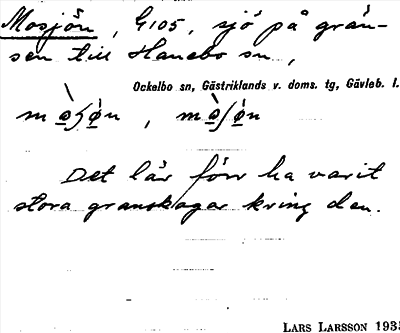 Mosjön, G105, sjö på grän-
sen till Hanebo sn,
Ockelbo sn, Gästriklands v. doms. tg, Gävleb. l.
Det lär förr ha varit
stora granskogar kring den.
LARS LARSSON 193